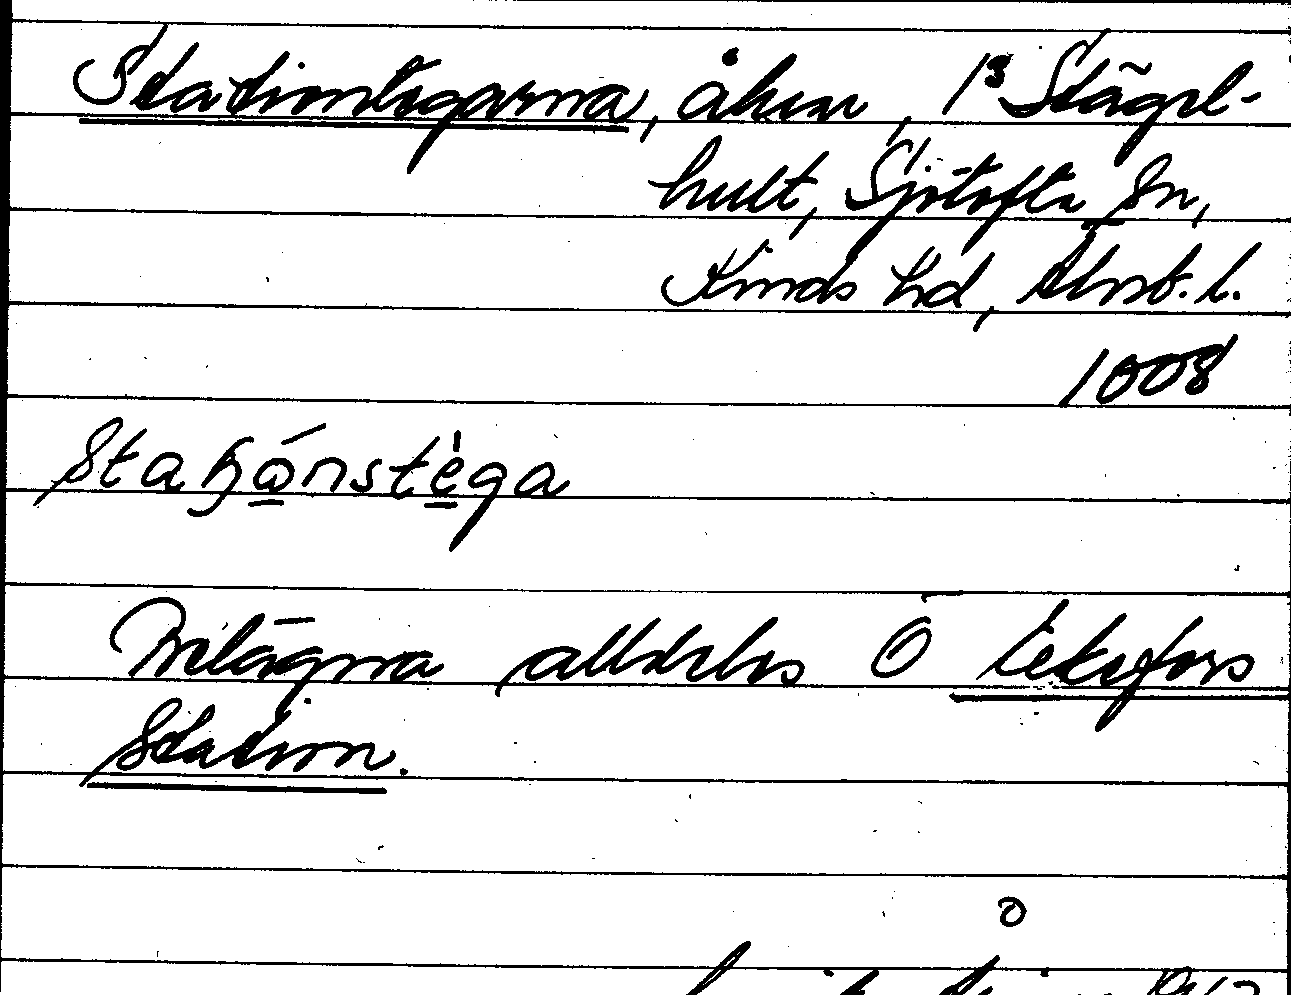 Stationtegarna, åkrar, 1³ Stāgel-
hult, Sjötofta sn,
Kinds hd, Älvsb. l.
1008
staɧώ̲nstè̲ga
Belägna alldeles Ö Eksfors
Station.